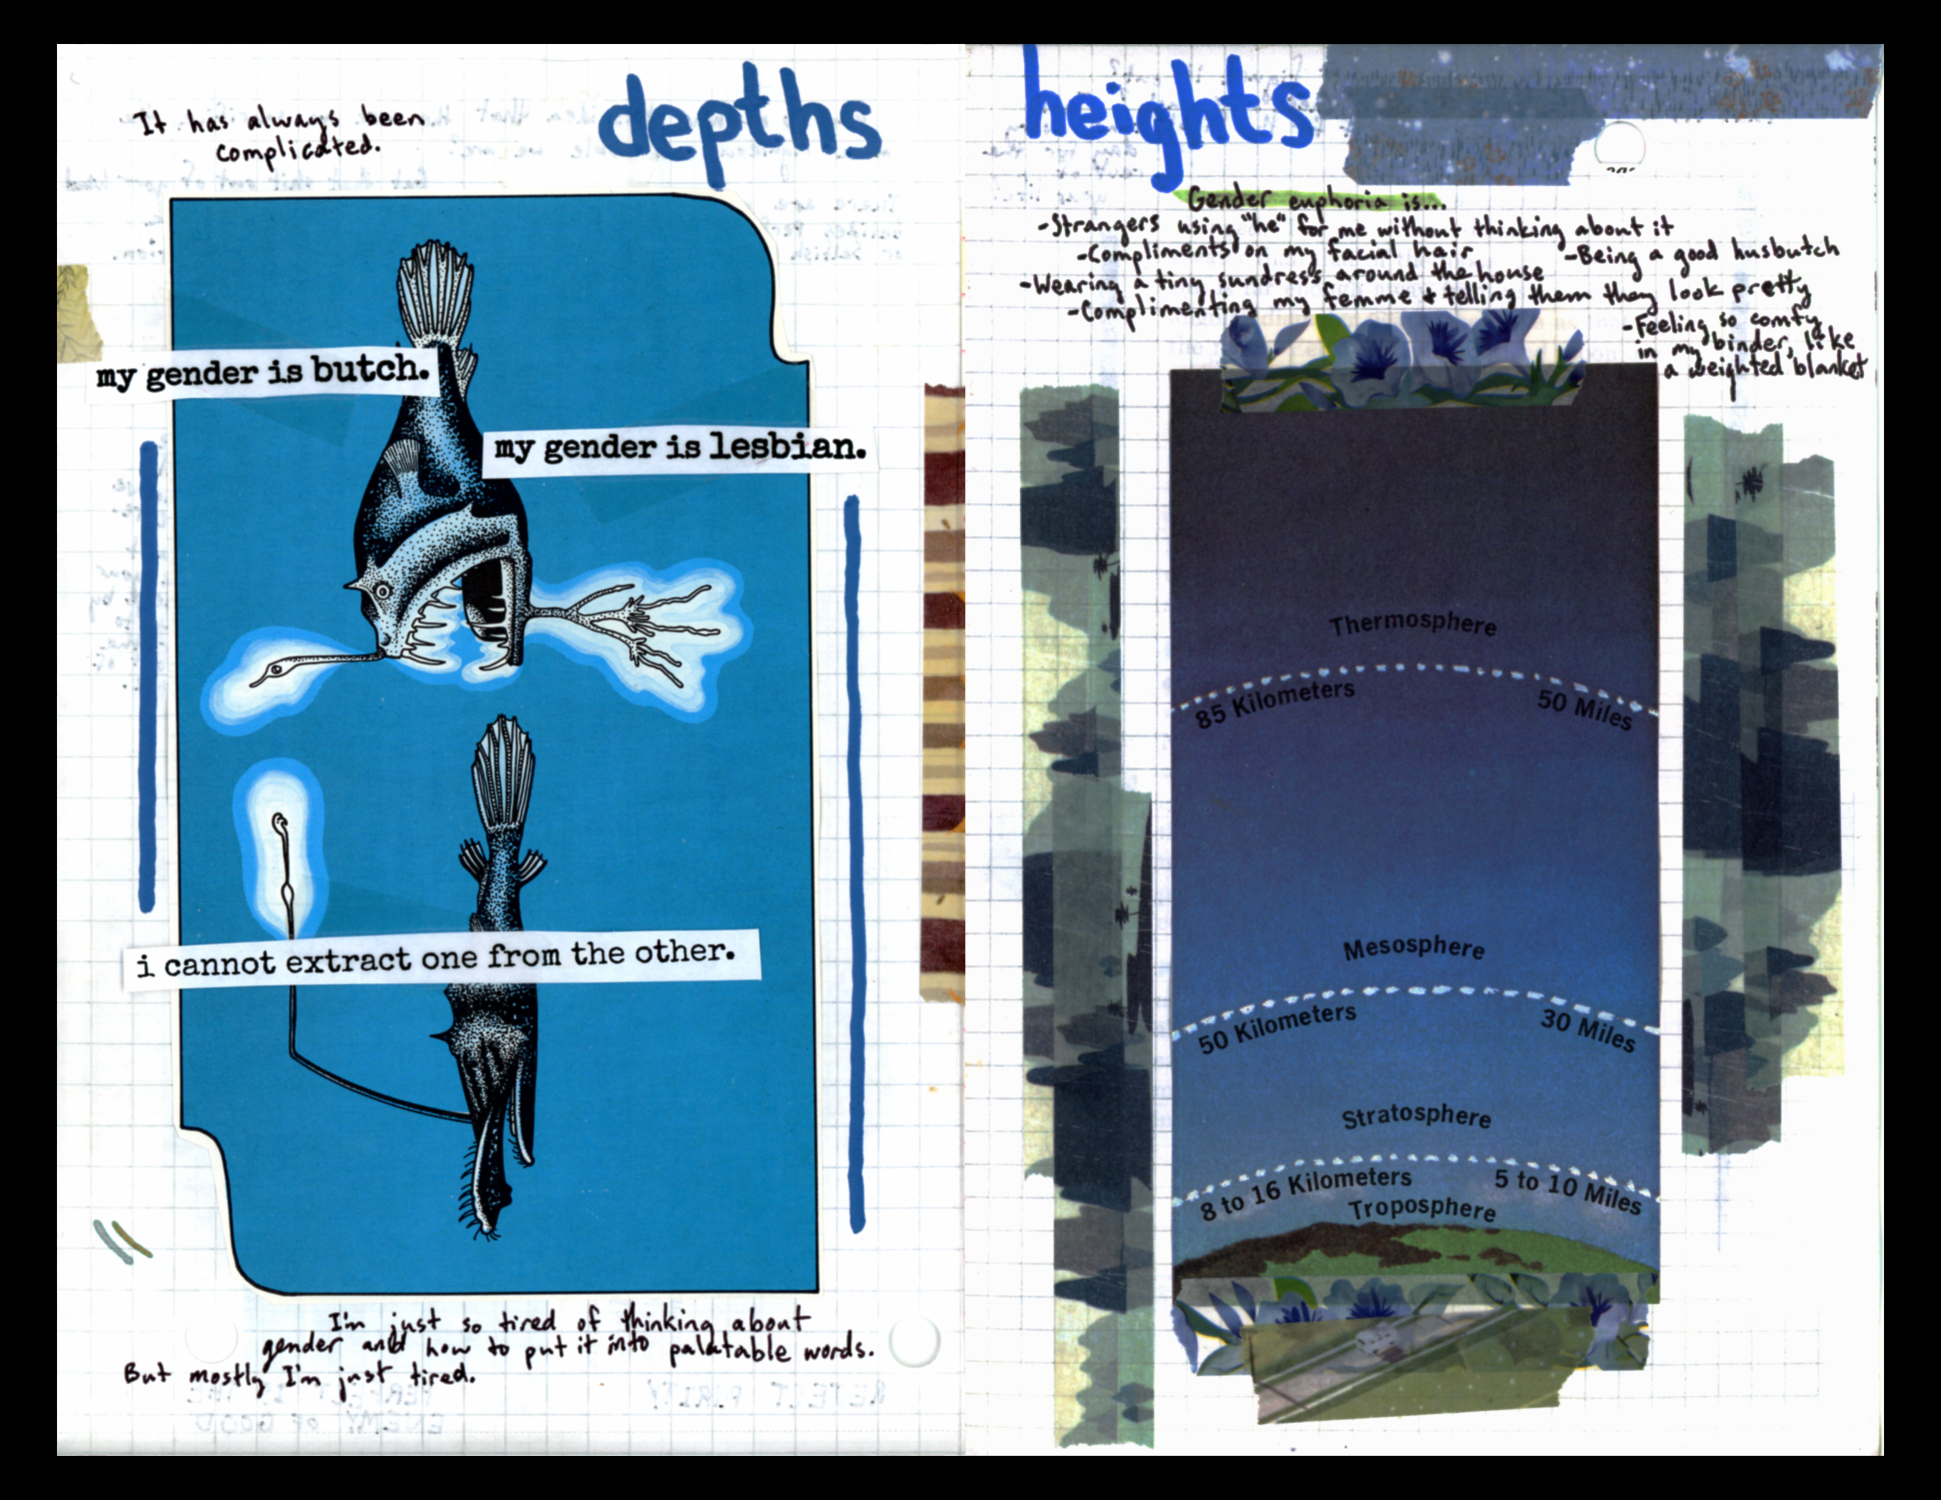 depths
It has always been
complicated.
my gender is butch.
my gender is lesbian.
i cannot extract one from the other.
I'm just so tired of thinking about
gender and how to put it into palatable words.
But mostly I'm just tired.
REJECT PURITY
PERFECT IS THE
ENEMY OF GOOD
heights
Gender euphoria is...
-Strangers using "he" for me without thinking about it
-Compliments on my facial hair
-Being a good husbutch
-Wearing a tiny sundress around the house
-Complimenting my femme & telling them they look pretty
-Feeling so comfy
in my binder, like
a weighted blanket
Thermosphere
85 Kilometers 50 Miles
Mesosphere
50 Kilometers 30 Miles
Stratosphere
8 to 16 Kilometers 5 to 10 Miles
Troposphere